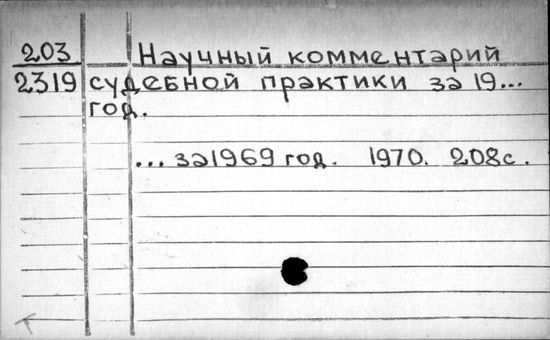 203 Научный комментарий
2319 судебной практики за 19...
год.
... за 1969 год. 1970. 208с.